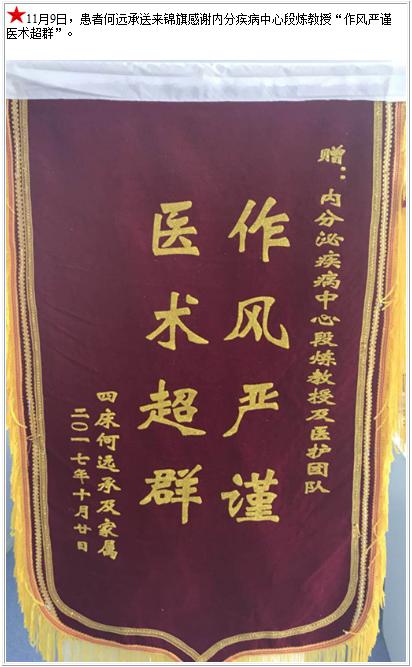 11月9日，患者何远承送来锦旗感谢内分疾病中心段炼教授“作风严谨
医术超群”。
赠：内分泌疾病中心段炼教授及医护团队
作风严谨
医术超群
四床何远承及家属
二〇一七年十月廿日